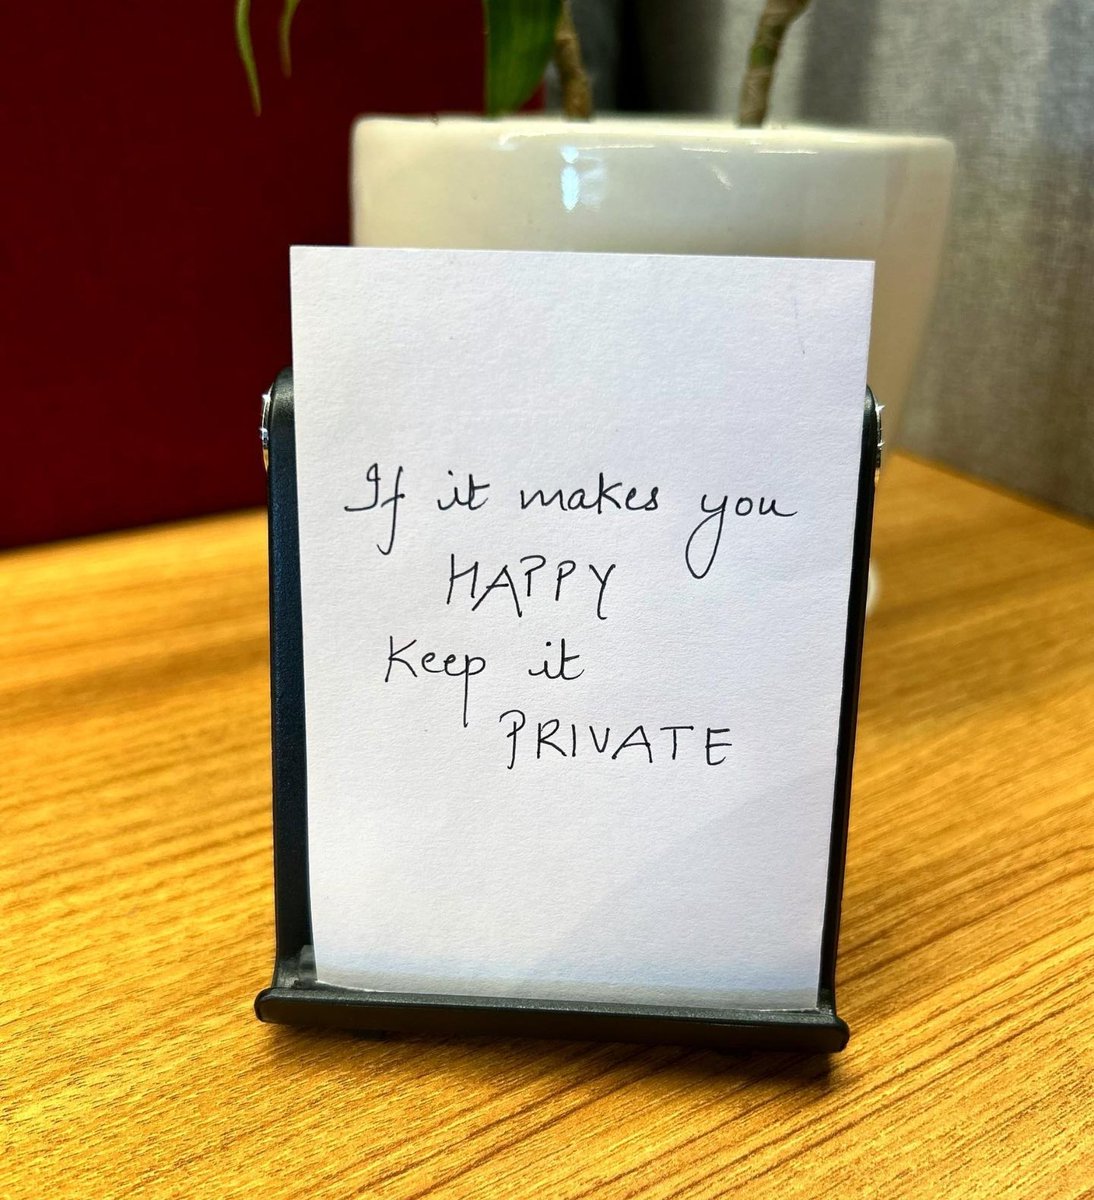 If it makes you
HAPPY
Keep it
PRIVATE